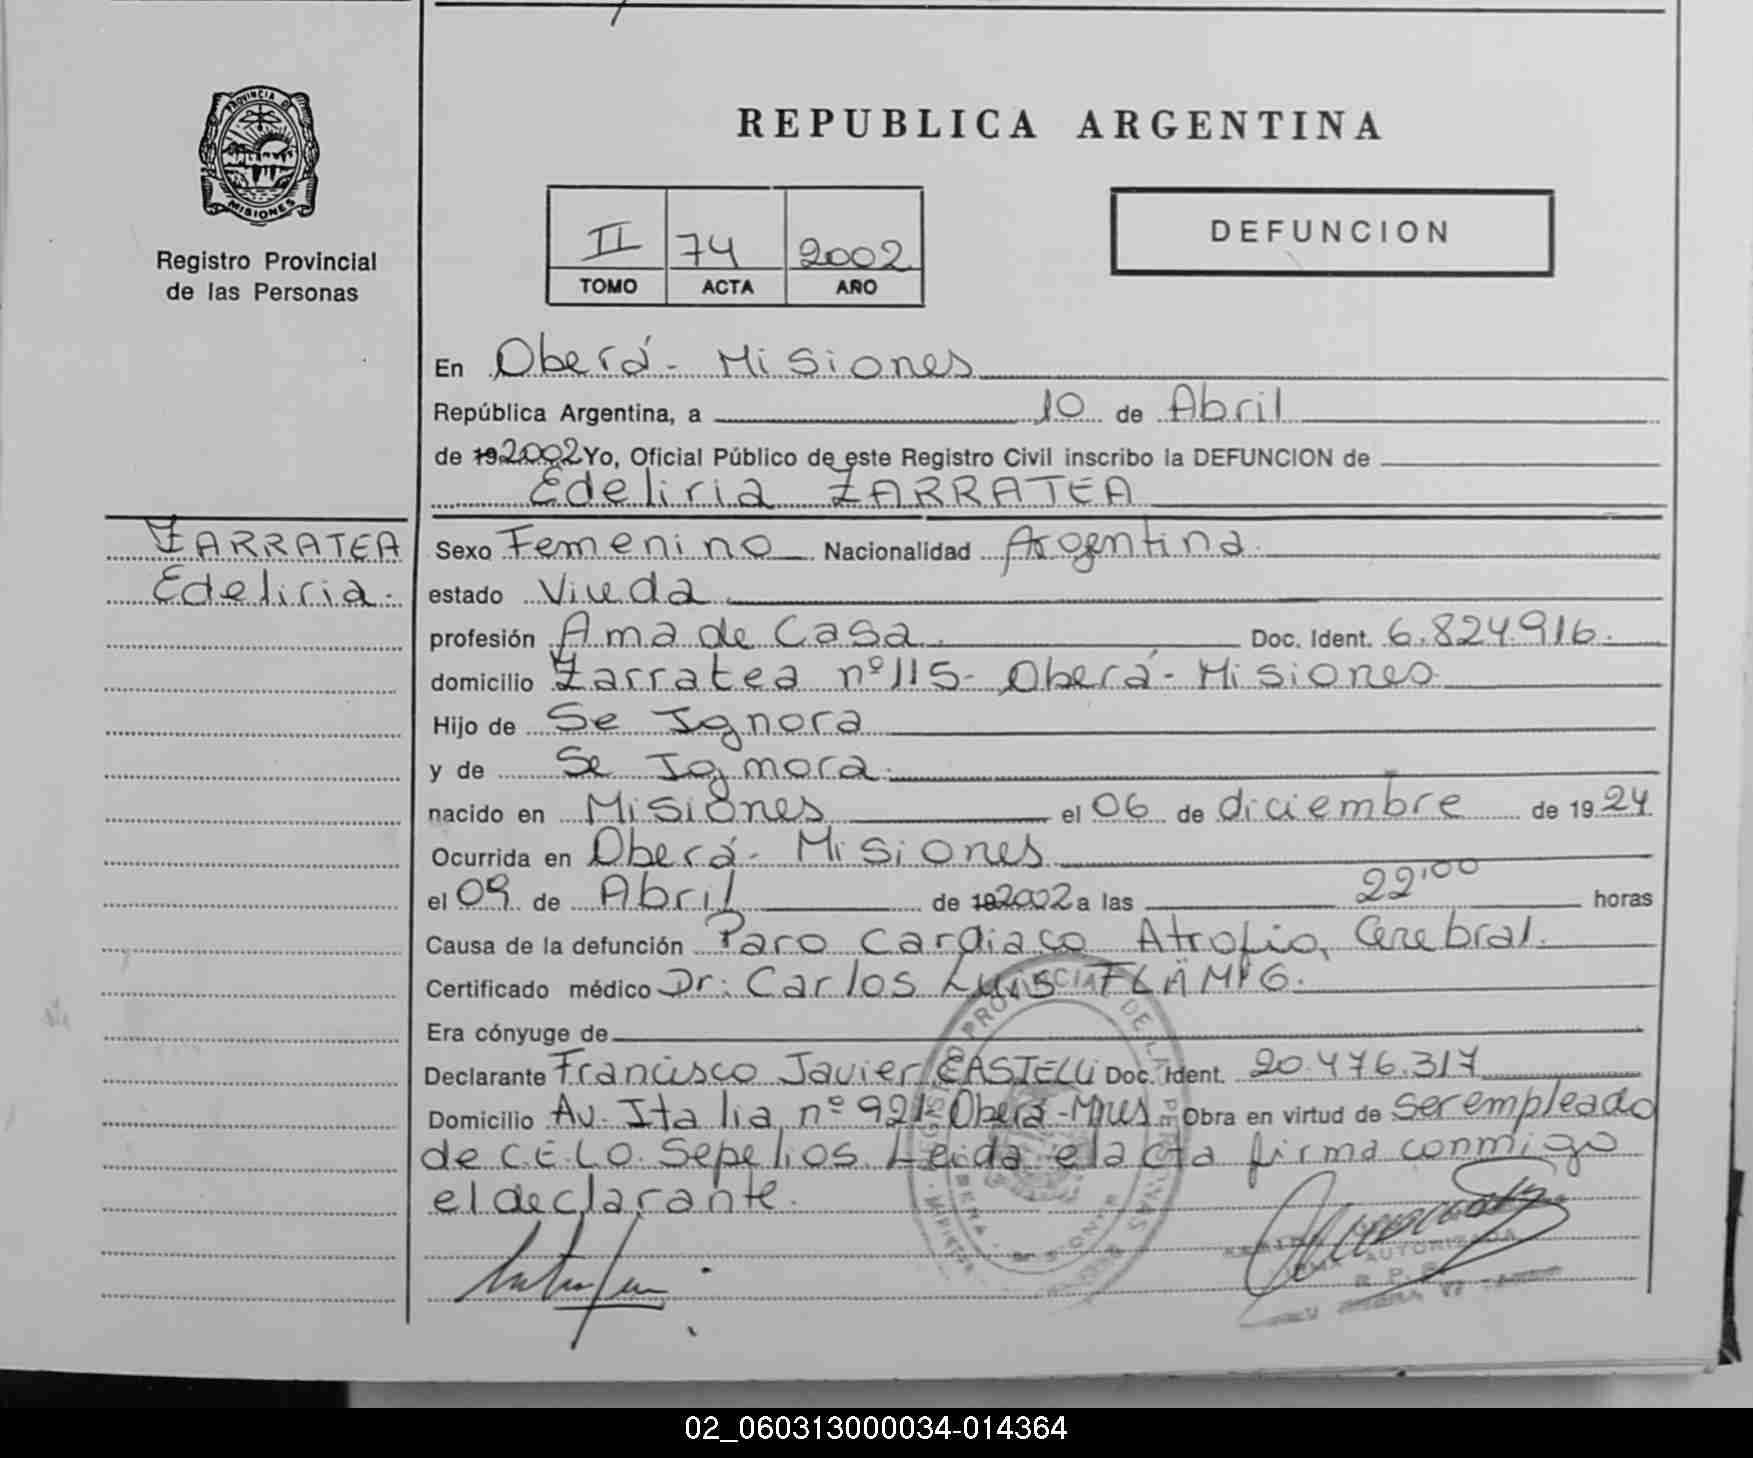 REPUBLICA ARGENTINA
PROVINCIA DE
MISIONES
Registro Provincial
de las Personas
II 74 2002
TOMO ACTA AÑO
DEFUNCION
En Oberá - Misiones
República Argentina, a 10 de Abril
de 19 2002 Yo, Oficial Público de este Registro Civil inscribo la DEFUNCION de
Edeliria ZARRATEA
ZARRATEA
Edeliria.
Sexo Femenino Nacionalidad Argentina.
estado Viuda.
profesión Ama de Casa. Doc. Ident. 6.824.916.
domicilio Zarratea nº 115- Oberá - Misiones.
Hijo de Se Ignora
y de Se Ignora.
nacido en Misiones el 06 de diciembre de 19 24
Ocurrida en Oberá - Misiones
el 09 de Abril de 19 2002 a las 22'00 horas
Causa de la defunción Paro Cardiaco Atrofia Cerebral.
Certificado médico Dr: Carlos Luis FLÄMIG.
Era cónyuge de
Declarante Francisco Javier Doc. Ident. 20.476.317
Domicilio Av. Italia nº 921 Oberá - Mnes Obra en virtud de ser empleado
de C.E.L.O. Sepelios. Leida el acta firma conmigo
el declarante.
AUTORIZADA
02_060313000034-014364